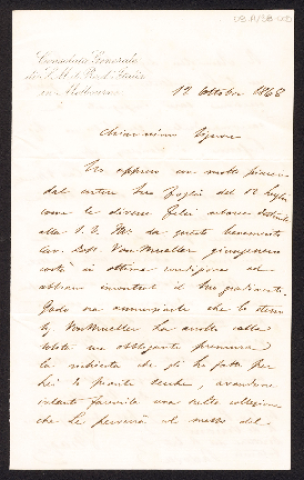 Consolato Generale
di S. M. il Re d'Italia
in Melbourne
12 Ottobre 1868
Chiarissimo Signore
Ho appreso con molto piacere
dal suo foglio del 12 Luglio
come le diverse felci arboree
alla S. V. Ma da questo benemerito
Cav. Dott. Von Mueller giungessero
costì in ottime condizioni ed
abbiano incontrato il suo gradimento.
Godo ora annunziarle che lo stesso
Von Mueller ha accolto colla
solita sua obbligante premura
la richiesta che gli ho fatta per
Lei di piante secche, avendone
intanto favorito una bella collezione
che Le perverrà col mezzo del